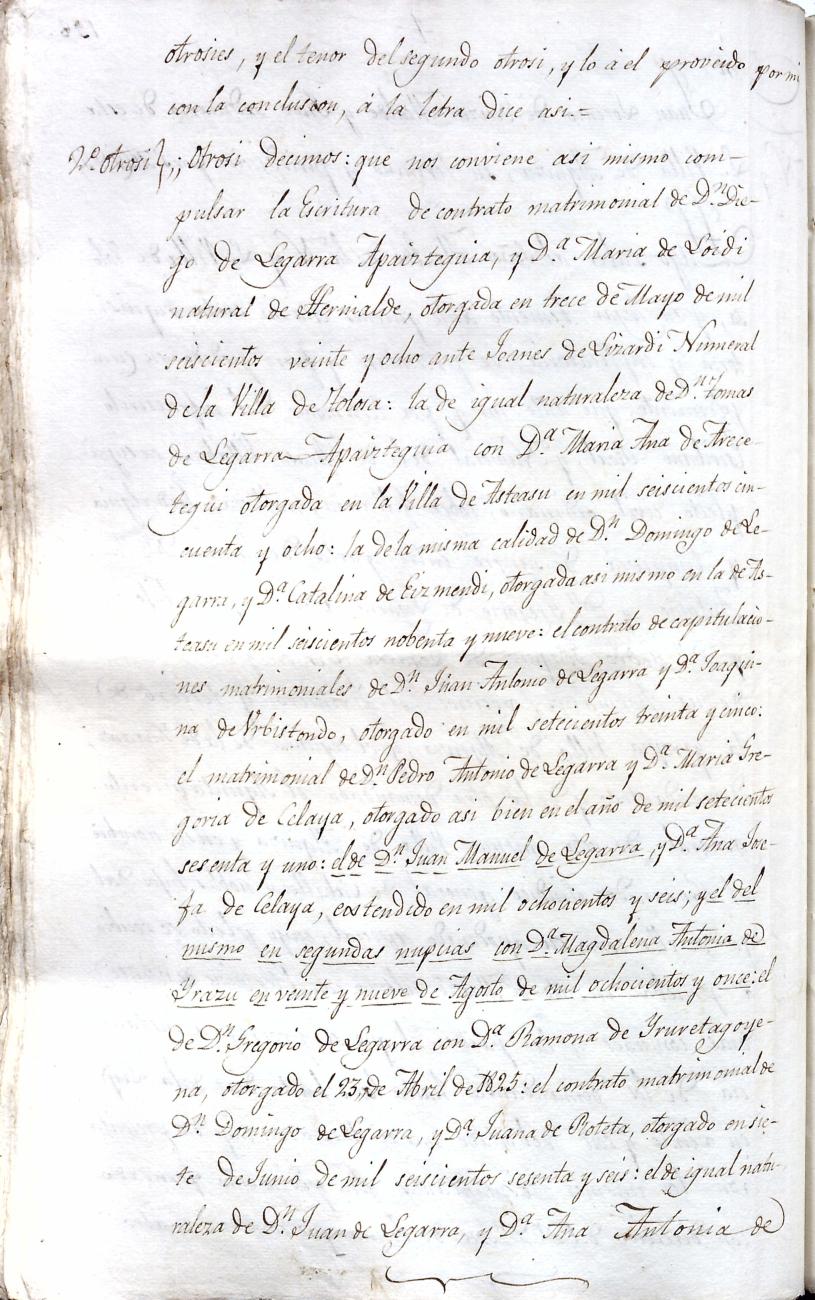 otrosies, y el tenor del segundo otrosi, y lo á el proveido por mi
con la conclusion, á la letra dice asi.=
2º. otrosi ,,Otrosi decimos: que nos conviene asi mismo com-
pulsar la Escritura de contrato matrimonial de Dn. Die-
go de Legarra Apaizteguia, y Dª. Maria de Loidi
natural de Hernialde, otorgada en trece de Mayo de mil
seiscientos veinte y ocho ante Joanes de Lizardi Numeral
de la Villa de Tolosa: la de igual naturaleza de Dn. Tomas
de Legarra Apaizteguia con Dª. Maria Ana de Arece-
tegui otorgada en la Villa de Asteasu en mil seiscientos cin-
cuenta y ocho: la de la misma calidad de Dn. Domingo de Le-
garra, y Dª. Catalina de Eizmendi, otorgada asi mismo en la de As-
teasu en mil seiscientos nobenta y nueve: el contrato de capitulacio-
nes matrimoniales de Dn. Juan Antonio de Legarra y Dª. Joaqui-
na de Urbistondo, otorgado en mil setecientos treinta y cinco:
el matrimonial de Dn. Pedro Antonio de Legarra y Dª. Maria Gre-
goria de Celaya, otorgado asi bien en el año de mil setecientos
sesenta y uno: el de Dn. Juan Manuel de Legarra, y Dª. Ana Jose-
fa de Celaya, eostendido en mil ochocientos y seis; y el del
mismo en segundas nupcias con Dª. Magdalena Antonia de
Yrazu en veinte y nueve de Agosto de mil ochocientos y once: el
de Dn. Gregorio de Legarra con Dª. Ramona de Yruretagoye-
na, otorgado el 23,, de Abril de 1825: el contrato matrimonial de
Dn. Domingo de Legarra, y Dª. Juana de Roteta, otorgado en sie-
te de Junio de mil seiscientos sesenta y seis: el de igual natu-
raleza de Dn. Juan de Legarra, y Dª. Ana Antonia de